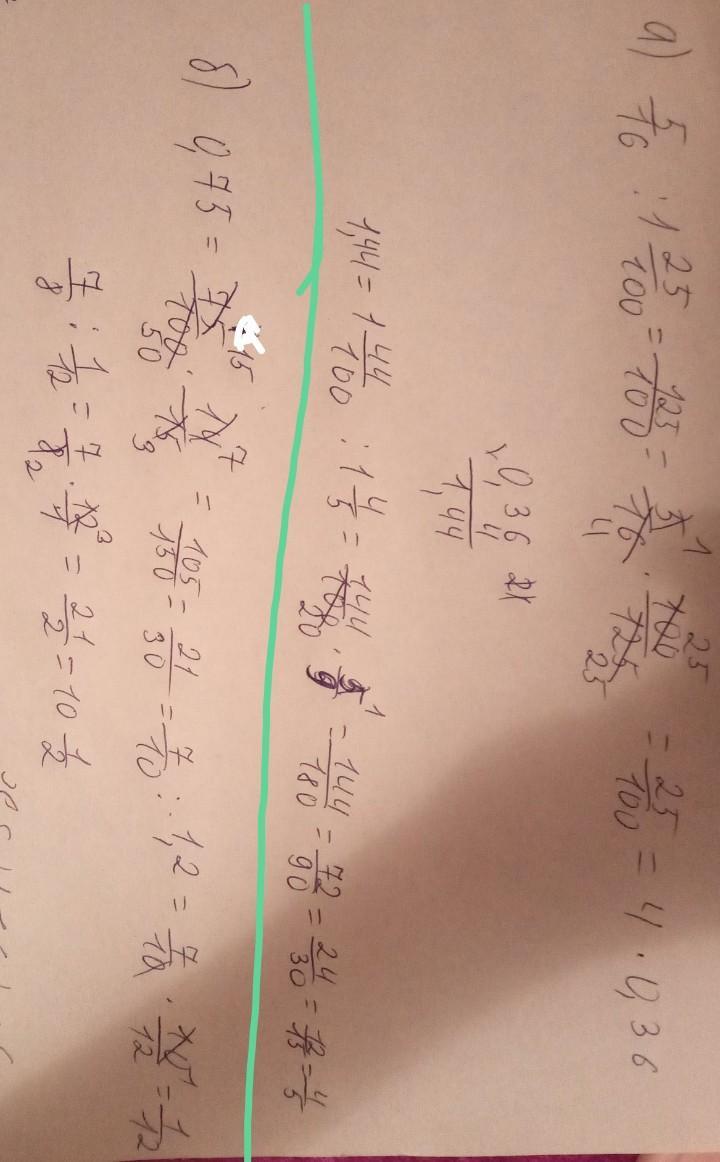 а) 5/16 : 1 25/100 = 125/100 = 5/16 · 100/125 = 25/100 = 4 · 0,36
0,36
4
1,44
1,44 = 1 44/100 : 1 4/5 = 144/100 · 5/9 = 144/180 = 72/90 = 24/30 = 12/15 = 4/5
б) 0,75 = 75/100 · 14/15 = 105/150 = 21/30 = 7/10 : 1,2 = 7/10 · 10/12 = 1/12
7/8 : 1/12 = 7/8 · 12/1 = 21/2 = 10 1/2